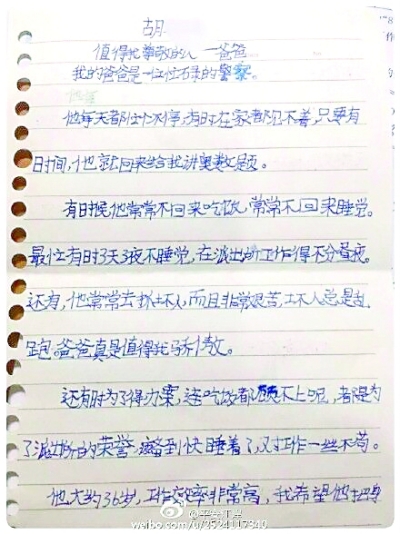 胡
值得我尊敬的人—爸爸
我的爸爸是一位忙碌的警察。
他每天都忙忙不停,有时在家都见不着,只要有
时间,他就回来给我讲奥数题。
有时候他常常不回来吃饭,常常不回来睡觉。
最忙有时3天3夜不睡觉,在派出所工作得不分昼夜。
还有,他常常去抓坏人,而且非常艰苦,坏人总是乱
跑。爸爸真是值得我骄傲。
还有时为了得办案,连吃饭都顾不上呢,都是为
了派出所的荣誉,累到快睡着了,对工作一丝不苟。
他大约36岁,工作效率非常高,我希望他把身
@平安江夏
weibo.com/u/2524117340